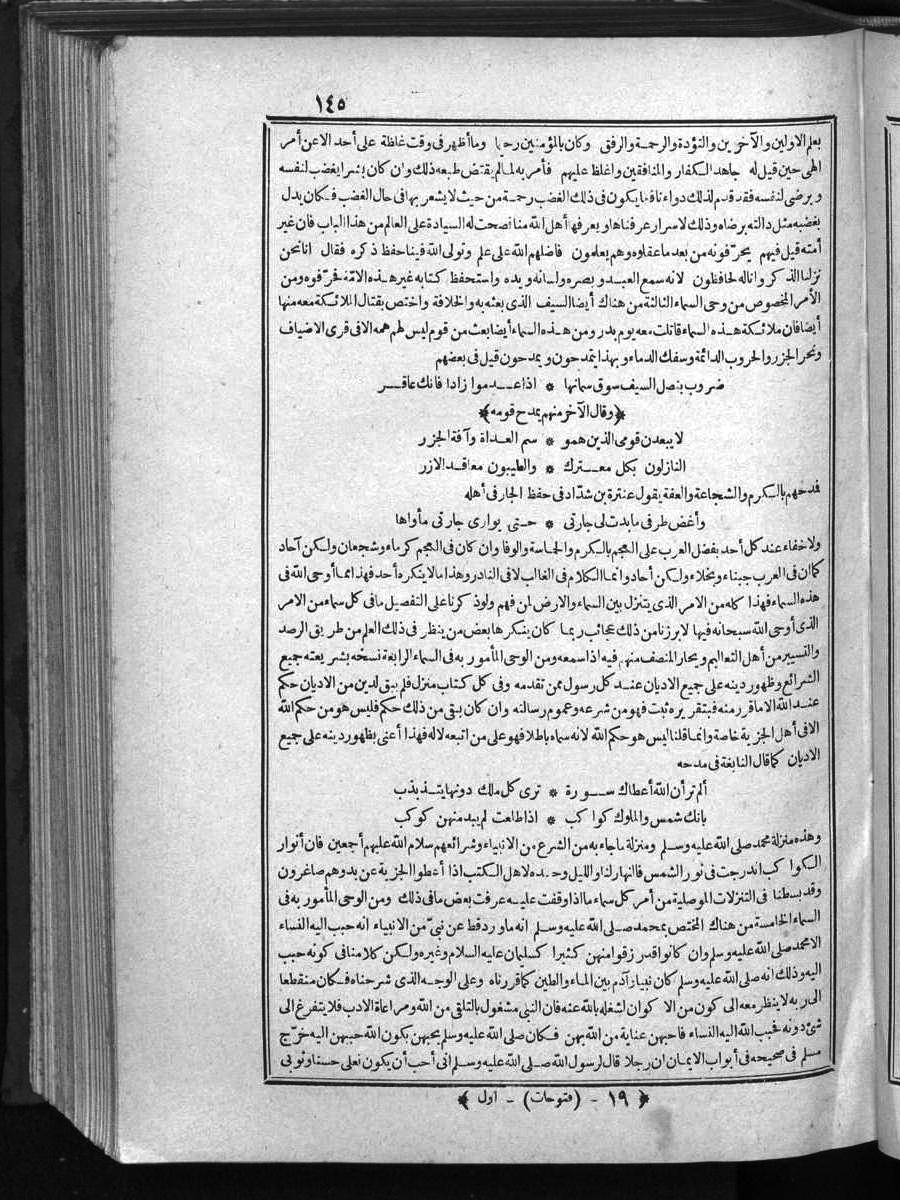 ١٤٥
بعلم الاولين والآخرين والتؤدة والرحمة والرفق وكان بالمؤمنين رحيما وما أظهر فى وقت غلظة على أحد الا عن أمر
الهى حين قيل له جاهد الكفار والمنافقين واغلظ عليهم فأمر به لمالم يقتض طبعه ذلك وان كان بشرا يغضب لنفسه
ويرضى لنفسه فقد قدم لذلك دواء نافعا يكون فى ذلك الغضب رحمة من حيث لا يشعر بها فى حال الغضب فكان يدل
بغضبه مثل دالته برضاه وذلك لاسرار عرفناها ويعرفها أهل الله منا فصحت له السيادة على العالم من هذا الباب فان غير
أمته قيل فيهم يحرّفونه من بعد ما عقلوه وهم يعلمون فاضلهم الله على علم وتولى الله فينا حفظ ذكره فقال انا نحن
نزلنا الذكر وانا له لحافظون لانه سمع العبد وبصره ولسانه ويده واستحفظ كتابه غير هذه الامّة فحرّفوه ومن
الأمر المخصوص من وحى السماء الثالثة من هناك أيضا السيف الذى بعث به والخلافة واختص بقتال الملائكة معه منها
أيضا فان ملائكة هذه السماء قاتلت معه يوم بدر ومن هذه السماء أيضا بعث من قوم ليس لهم همه الا فى قرى الاضياف
ونحر الجزر والحروب الدائمة وسفك الدماء وبهذا يتمدحون ويمدحون قيل فى بعضهم
ضروب بنصل السيف سوق سمانها * اذا عدموا زادا فانك عاقر
﴿وقال الآخر منهم يمدح قومه﴾
لا يبعدن قومى الذين همو * سم العداة وآفة الجزر
النازلون بكل معترك * والطيبون معاقد الازر
فمدحهم بالكرم والشجاعة والعفة يقول عنترة بن شدّاد فى حفظ الجار فى أهله
وأغض طرفى ما بدت لى جارتى * حتى يوارى جارتى مأواها
ولا خفاء عند كل أحد بفضل العرب على العجم بالكرم والحماسة والوفا وان كان فى العجم كرماء وشجعان ولكن آحاد
كما ان فى العرب جبناء وبخلاء ولكن آحاد وانما الكلام فى الغالب لا فى النادر وهذا ما لا ينكره أحد فهذا مما أوحى الله فى
هذه السماء فهذا كله من الامر الذى يتنزل بين السماء والارض لمن فهم ولو ذكرنا على التفصيل ما فى كل سماء من الامر
الذى أوحى الله سبحانه فيها لابرزنا من ذلك عجائب ربما كان ينكرها بعض من ينظر فى ذلك العلم من طريق الرصد
والتسيير من أهل التعاليم ويحار المنصف منهم فيه اذا سمعه ومن الوحى المأمور به فى السماء الرابعة نسخه بشريعته جميع
الشرائع وظهور دينه على جميع الاديان عند كل رسول ممن تقدمه وفى كل كتاب منزل فلم يبق لدين من الاديان حكم
عند الله الا ما قرر منه فبتقريره ثبت فهو من شرعه وعموم رسالته وان كان بقى من ذلك حكم فليس هو من حكم الله
الا فى أهل الجزية خاصة وانما قلنا ليس هو حكم الله لانه سماه باطلا فهو على من اتبعه لا له فهذا أعنى بظهور دينه على جميع
الاديان كما قال النابغة فى مدحه
ألم تر أن الله أعطاك سورة * ترى كل ملك دونها يتذبذب
بانك شمس والملوك كواكب * اذا طلعت لم يبد منهن كوكب
وهذه منزلة محمد صلى الله عليه وسلم ومنزلة ما جاء به من الشرع من الانبياء وشرائعهم سلام الله عليهم أجمعين فان أنوار
الكواكب اندرجت فى نور الشمس فالنهار لنا والليل وحده لاهل الكتب اذا أعطوا الجزية عن يد وهم صاغرون
وقد بسطنا فى التنزلات الموصلية من أمر كل سماء ما اذا وقفت عليه عرفت بعض ما فى ذلك ومن الوحى المأمور به فى
السماء الخامسة من هناك المختص بمحمد صلى الله عليه وسلم انه ما ورد قط عن نبىّ من الانبياء انه حبب اليه النساء
الا محمد صلى الله عليه وسلم وان كانوا قد رزقوا منهن كثيرا كسليمان عليه السلام وغيره ولكن كلامنا فى كونه حبب
اليه وذلك انه صلى الله عليه وسلم كان نبيا وآدم بين الماء والطين كما قررناه وعلى الوجه الذى شرحناه فكان منقطعا
الى ربه لا ينظر معه الى كون من الاكوان لشغله بالله عنه فان النبى مشغول بالتلقى من الله ومراعاة الادب فلا يتفرغ الى
شئ دونه فحبب الله اليه النساء فاحبهن عناية من الله بهن فكان صلى الله عليه وسلم يحبهن بكون الله حببهن اليه خرّج
مسلم فى صحيحه فى أبواب الايمان ان رجلا قال لرسول الله صلى الله عليه وسلم انى أحب أن يكون نعلى حسنا وثوبى
﴿١٩ - (فتوحات) - اول﴾